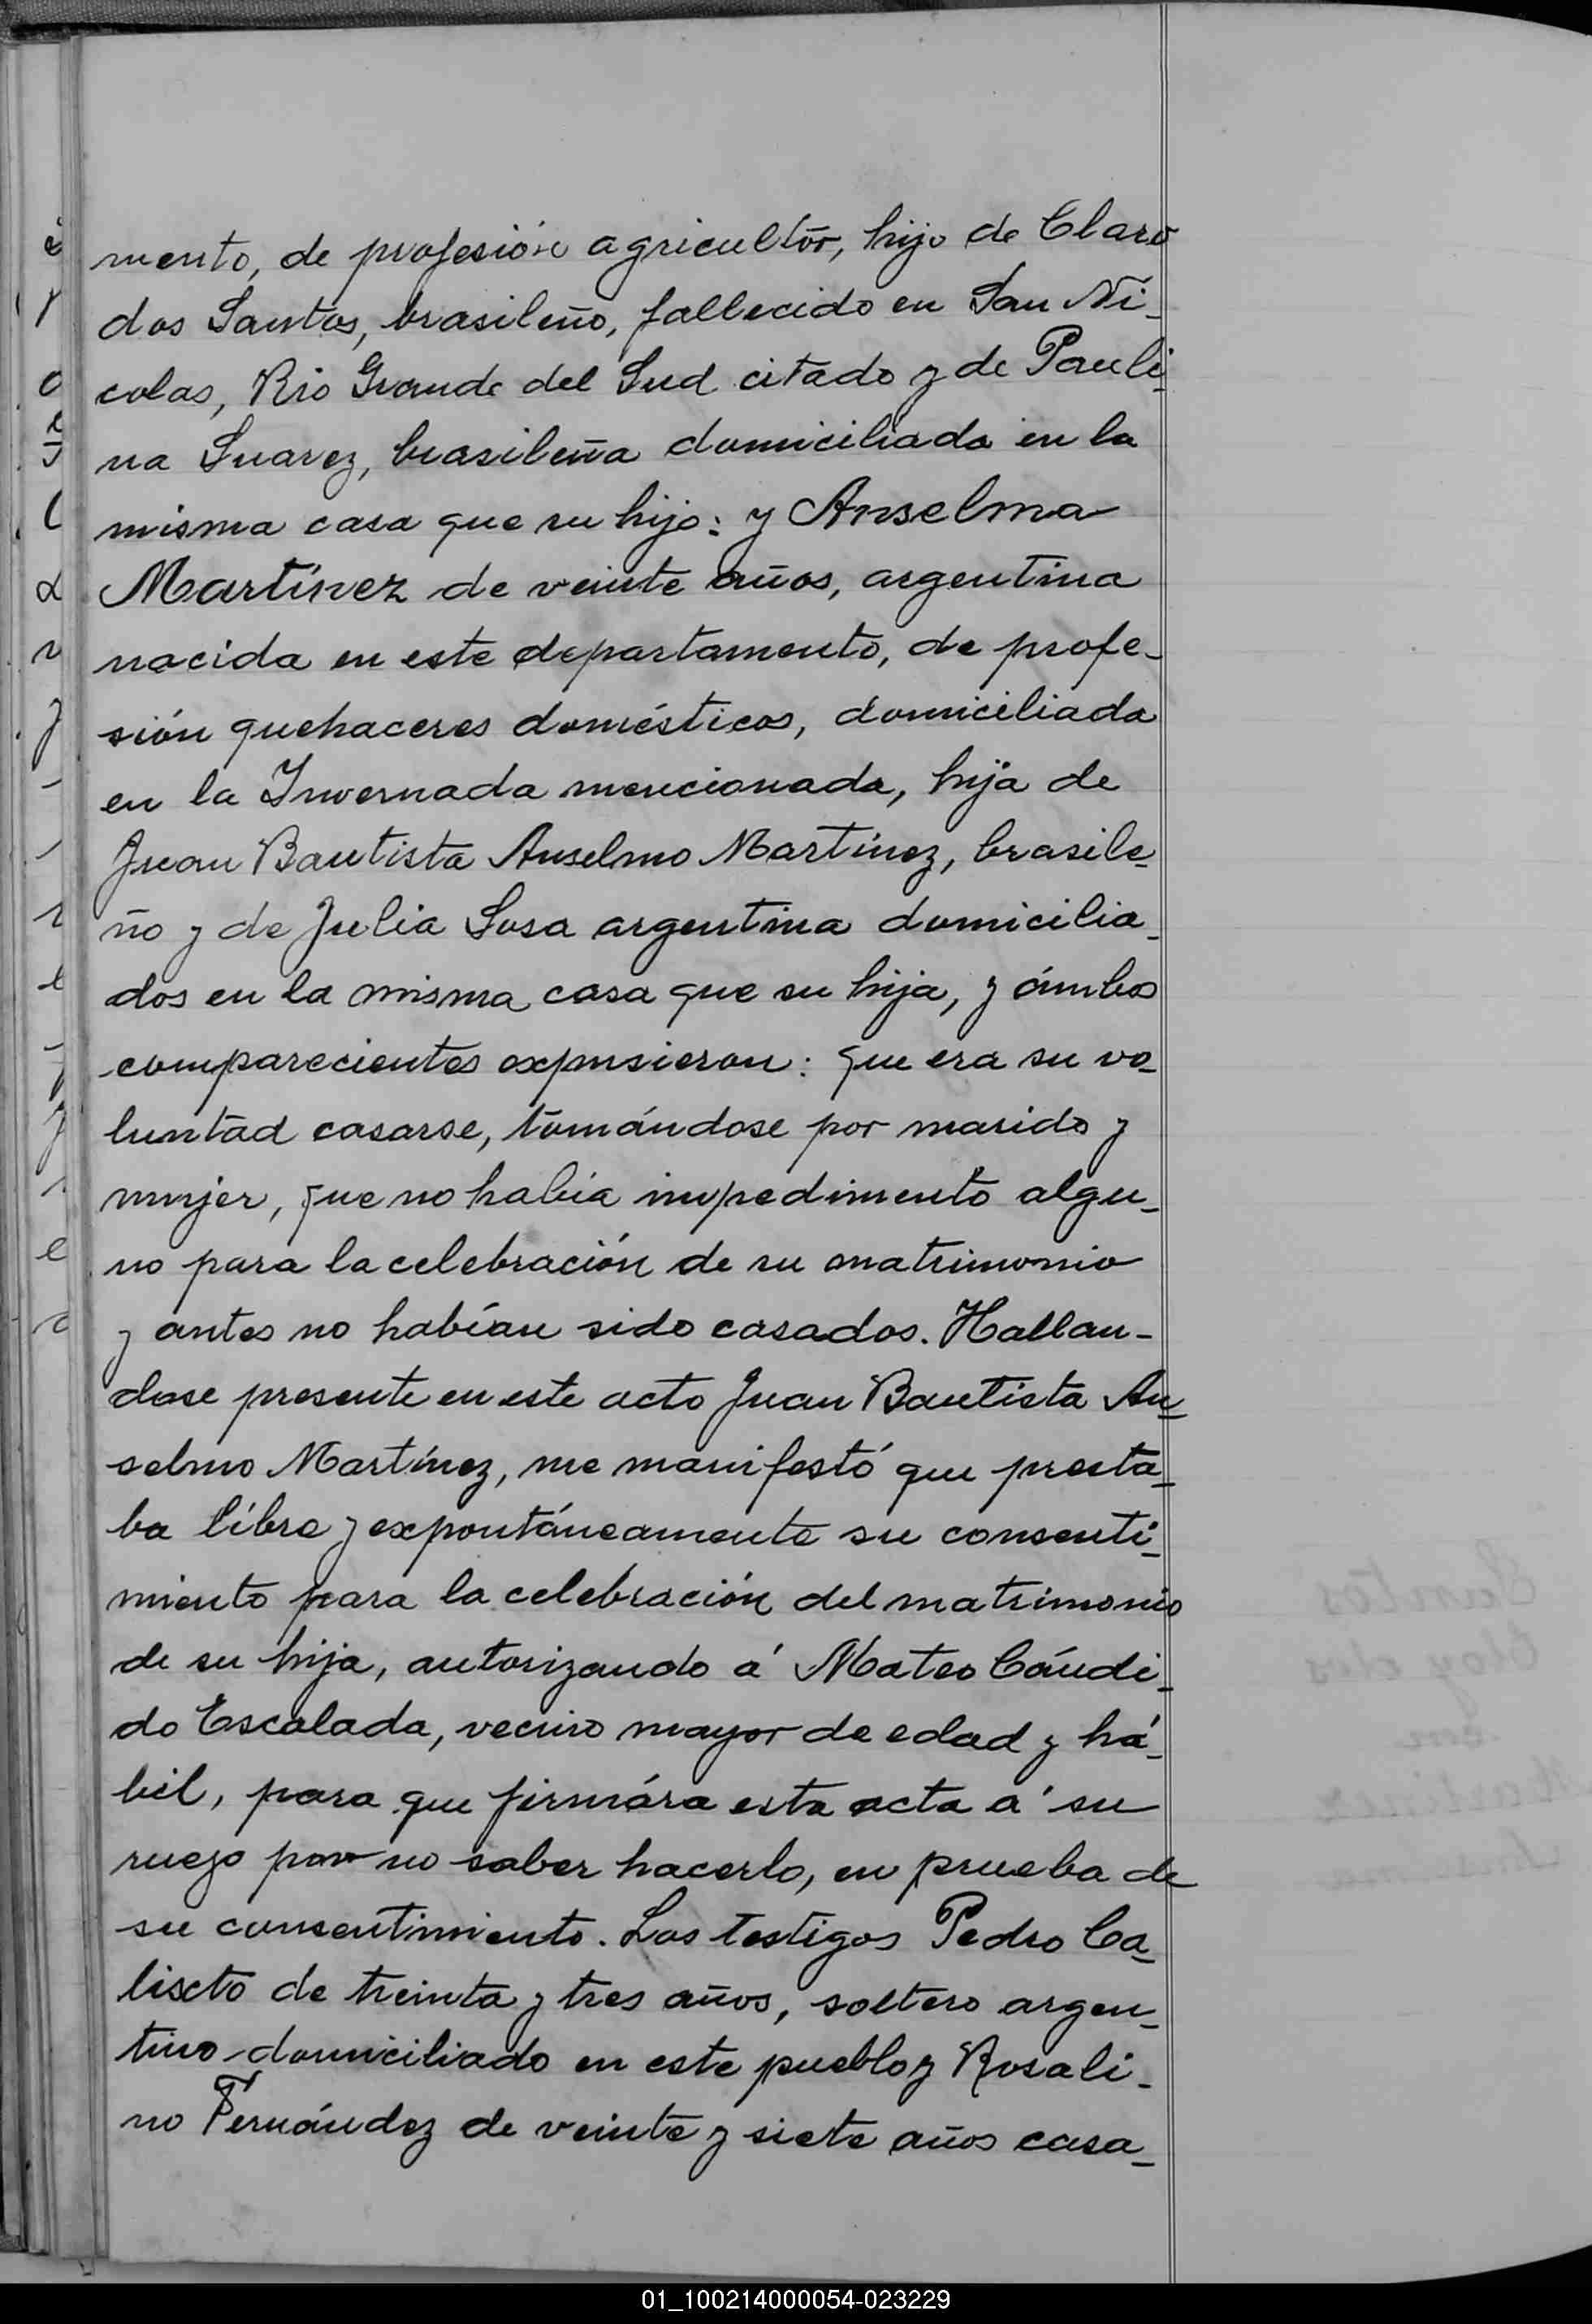 mento, de profesión agricultor, hijo de Claro
dos Santos, brasileño, fallecido en San Ni-
colas, Rio Grande del Sud citado y de Pauli-
na Suarez, brasileña domiciliada en la
misma casa que su hijo: y Anselma
Martínez de veinte años, argentina
nacida en este departamento, de profe-
sión quehaceres domésticos, domiciliada
en la Invernada mencionada, hija de
Juan Bautista Anselmo Martínez, brasile-
ño y de Julia Sosa argentina domicilia-
dos en la misma casa que su hija, y ámbos
comparecientes expusieron: que era su vo-
luntad casarse, tomándose por marido y
mujer, que no había impedimento algu-
no para la celebración de su matrimonio
y antes no habían sido casados. Hallan-
dose presente en este acto Juan Bautista An-
selmo Martínez, me manifestó que presta-
ba líbre y expontáneamente su consenti-
miento para la celebración del matrimonio
de su hija, autorizando á Mateo Cándi-
do Escalada, vecino mayor de edad y há-
bil, para que firmára esta acta á su
ruego por no saber hacerlo, en prueba de
su consentimiento. Los testigos Pedro Ca-
lixto de treinta y tres años, soltero argen-
tino domiciliado en este pueblo y Rosali-
no Fernández de veinte y siete años casa-
01_100214000054-023229